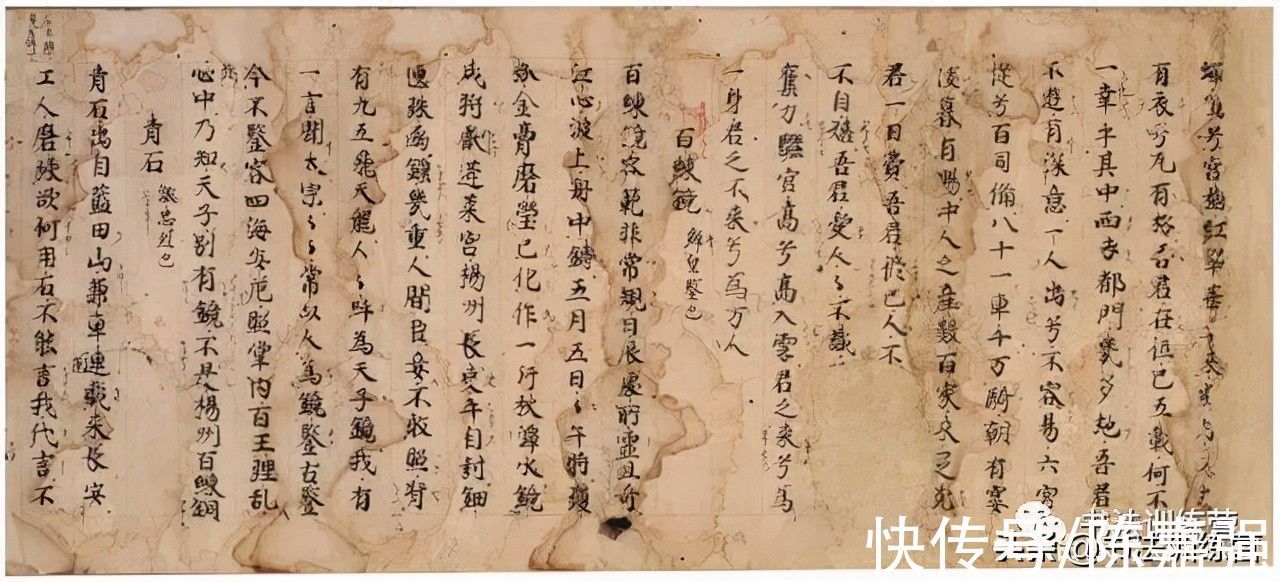 兮宮樹紅翠華不來歲月久
有衣兮瓦有松吾君在位已五載何不
一幸乎其中西去都門幾多地吾君
不遊有深意一人出兮不容易六宮
從兮百司備八十一車千万騎朝有宴
暮有賜中人之產數百家未足充
君一日費吾君修己人不
不自嬉吾君愛人々不識
力驪宮高兮高入雲君之来兮為
一身君之不来兮為万人
百鍊鏡 辨皇鑒也
百鍊鏡容範非常規日辰處所靈且奇
江心波上舟中鑄五月五日々午時瓊
粉金膏磨瑩已化作一片秋潭水鏡
成将獻蓬萊宮揚州長史手自封鈿
匣珠函鎖幾重人間臣妾不敢照背
有九五飛天龍人々呼為天子鏡我有
一言聞太宗々々常以人為鏡鑒古鑒
今不鑒容四海安危照掌内百王理乱
心中乃知天子別有鏡不是揚州百鍊銅
青石 激忠烈也
青石出自藍田山兼車運載来長安
工人磨琢欲何用石不能言我代言不
書法训练营
快传号/陈嘉强